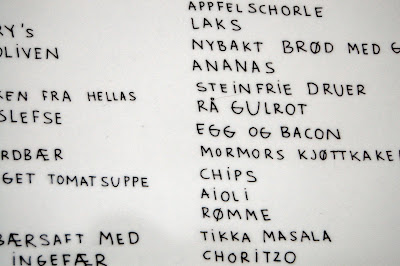 RY's
OLIVEN
KEN FRA HELLAS
SLEFSE
RDBÆR
GET TOMATSUPPE
BÆRSAFT MED
INGEFÆR
APPFELSCHORLE
LAKS
NYBAKT BRØD MED G
ANANAS
STEINFRIE DRUER
RÅ GULROT
EGG OG BACON
MORMORS KJØTTKAKE
CHIPS
AIOLI
RØMME
TIKKA MASALA
CHORITZO